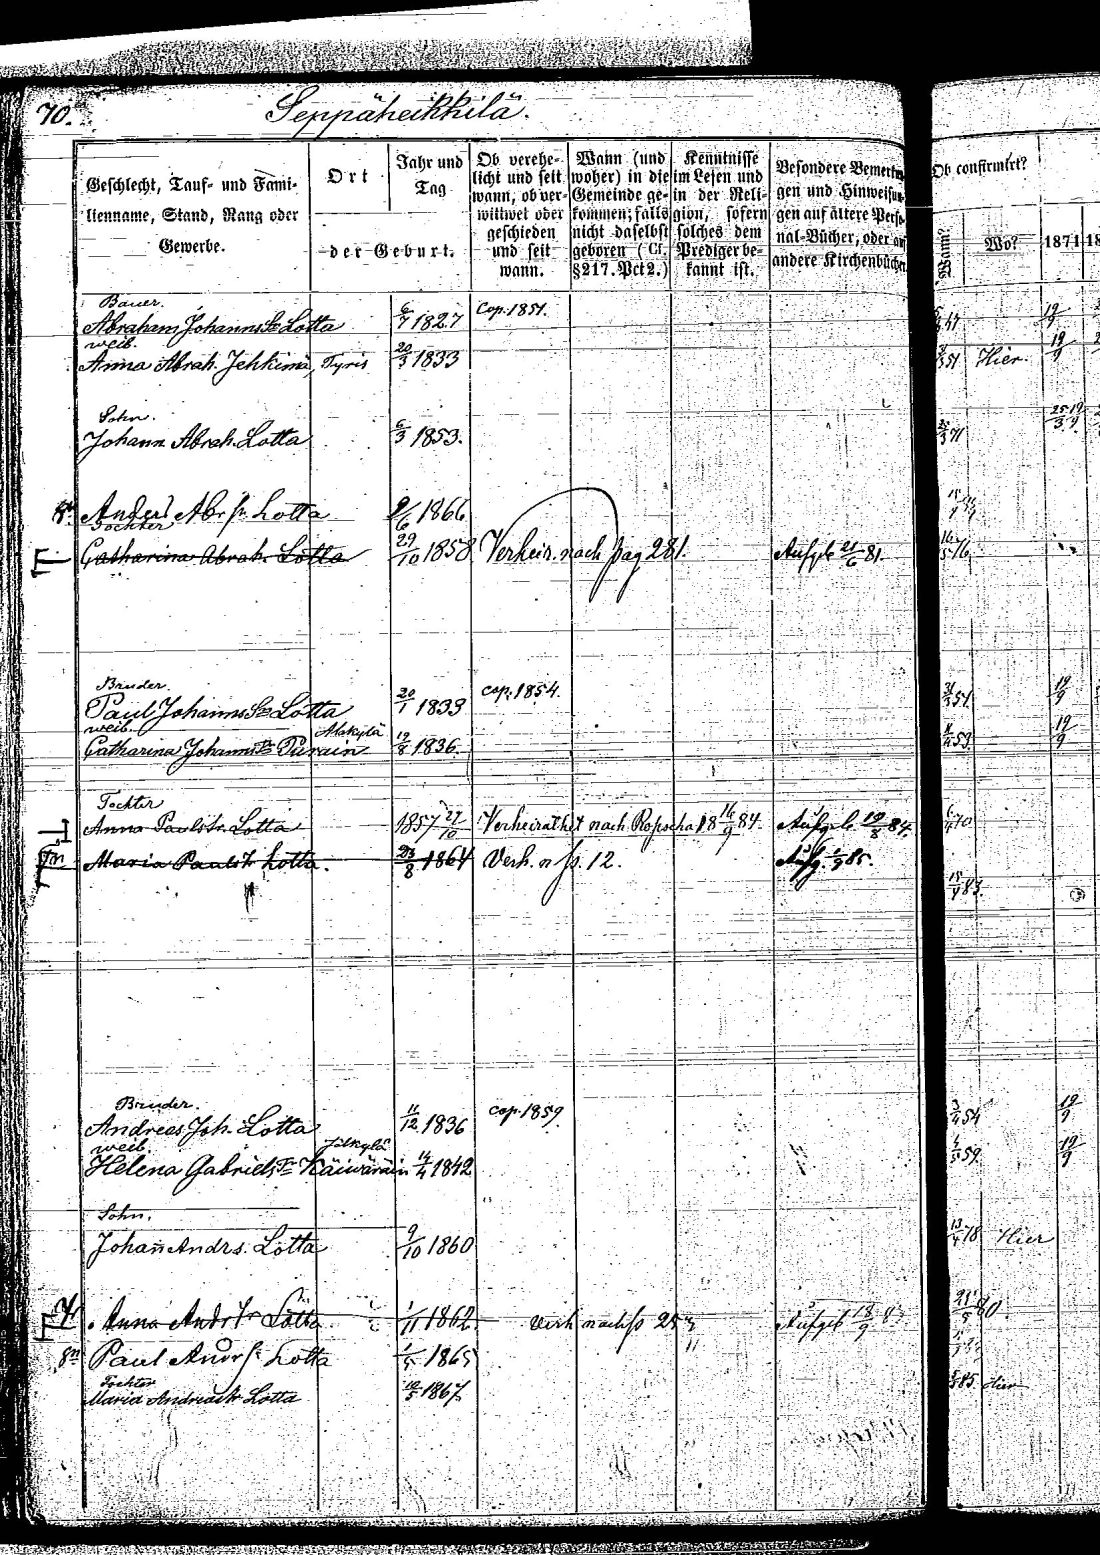 70.
Seppäheikkilä.
Geschlecht, Tauf- und Fami-
lienname, Stand, Rang oder
Gewerbe.
Ort
der Geburt.
Jahr und
Tag
Ob verehe-
licht und seit
wann, ob ver-
wittwet oder
geschieden
und seit
wann.
Wann (und
woher) in die
Gemeinde ge-
kommen; falls
nicht daselbst
geboren (Cf.
§217. Pct 2.)
Kenntnisse
im Lesen und
in der Reli-
gion, sofern
solches dem
Prediger be-
kannt ist.
Besondere Bemerkun
gen und Hinweisun
gen auf ältere Perso
nal-Bücher, oder au
andere Kirchenbücher
Ob confirmirt?
Wann?
Wo?
1871
Bauer.
Abraham Johanns Sn Lotta 6/7 1827 Cop. 1851. 19/9
weib.
Anna Abrah. Tyris 20/3 1833 51 Hier. 19/9
Sohn.
Johann Abrah. Lotta 6/3 1853. 71 25/3 19/9
Sn Anders Abr. Sn Lotta 9/6 1866
Tochter
Catharina Abrah. Lotta 29/10 1858 Verheir. nach pag 281. Aufgeb 21/6 81. 16/5 76
Bruder.
Paul Johanns Sn Lotta 20/1 1833 cop. 1854. 51 19/9
weib. Alakylä
Catharina Johanns 19/8 1836. 53 19/9
Tochter
Anna Paulstr. Lotta 1857 27/10 Verheirathet nach Ropscha 18 16/9 84. Aufgeb 19/8 84. 70
Maria Paulstr Lotta. 23/8 1864 Verh. n p. 12. Aufg. 1/9 85. 83.
Bruder.
Andreas Joh. Lotta 11/12 1836 cop. 1859 54 19/9
weib.
Helena Gabriels 14/4 1842 59 19/9
Sohn.
Johan Andrs. Lotta 9/10 1860 78 Hier
Anna Andrstr Lotta 1/11 1862 Verh nach p 253 Aufgeb 18/9 80.
Sn Paul Andr Sn Lotta 1865
Tochter
Maria Andreastr Lotta 1867. 85 Hier